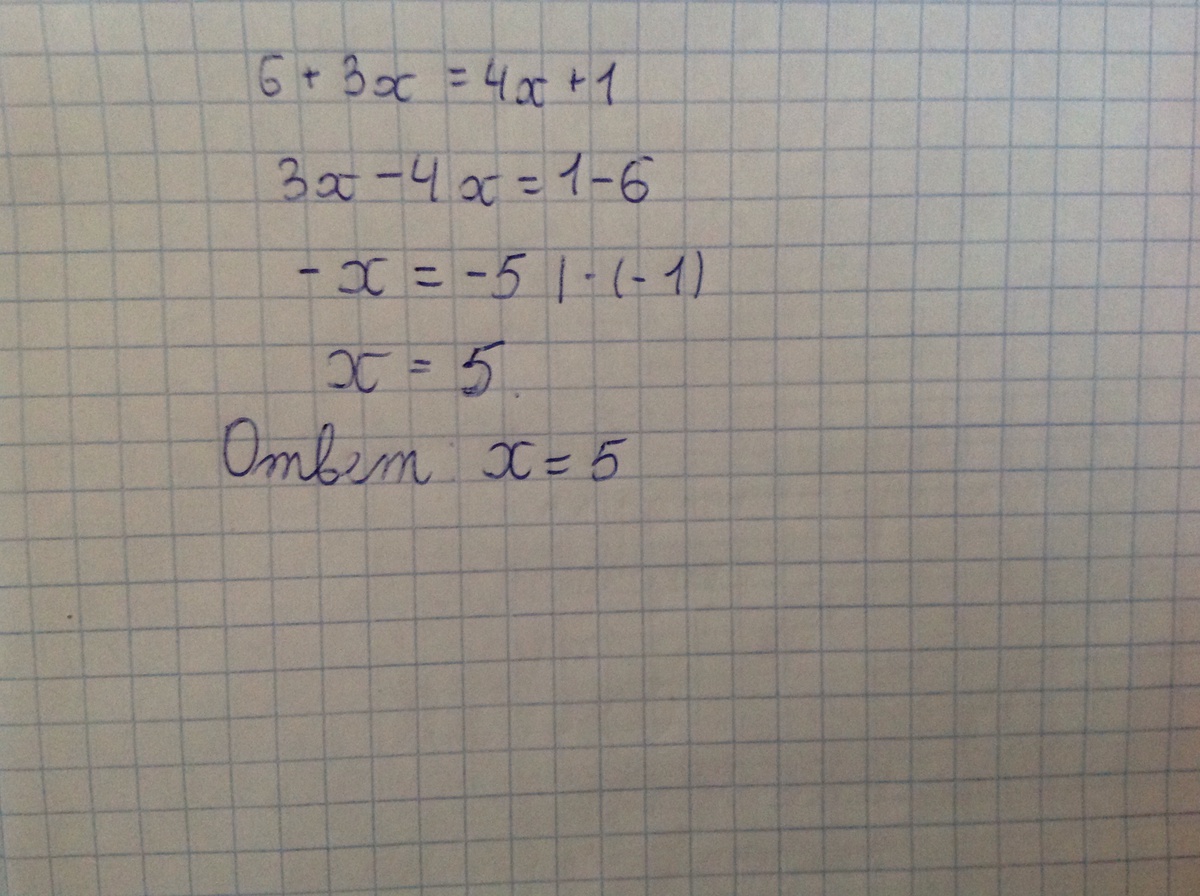 6 + 3x = 4x + 1
3x - 4x = 1 - 6
- x = -5 | · (-1)
x = 5.
Ответ: x = 5